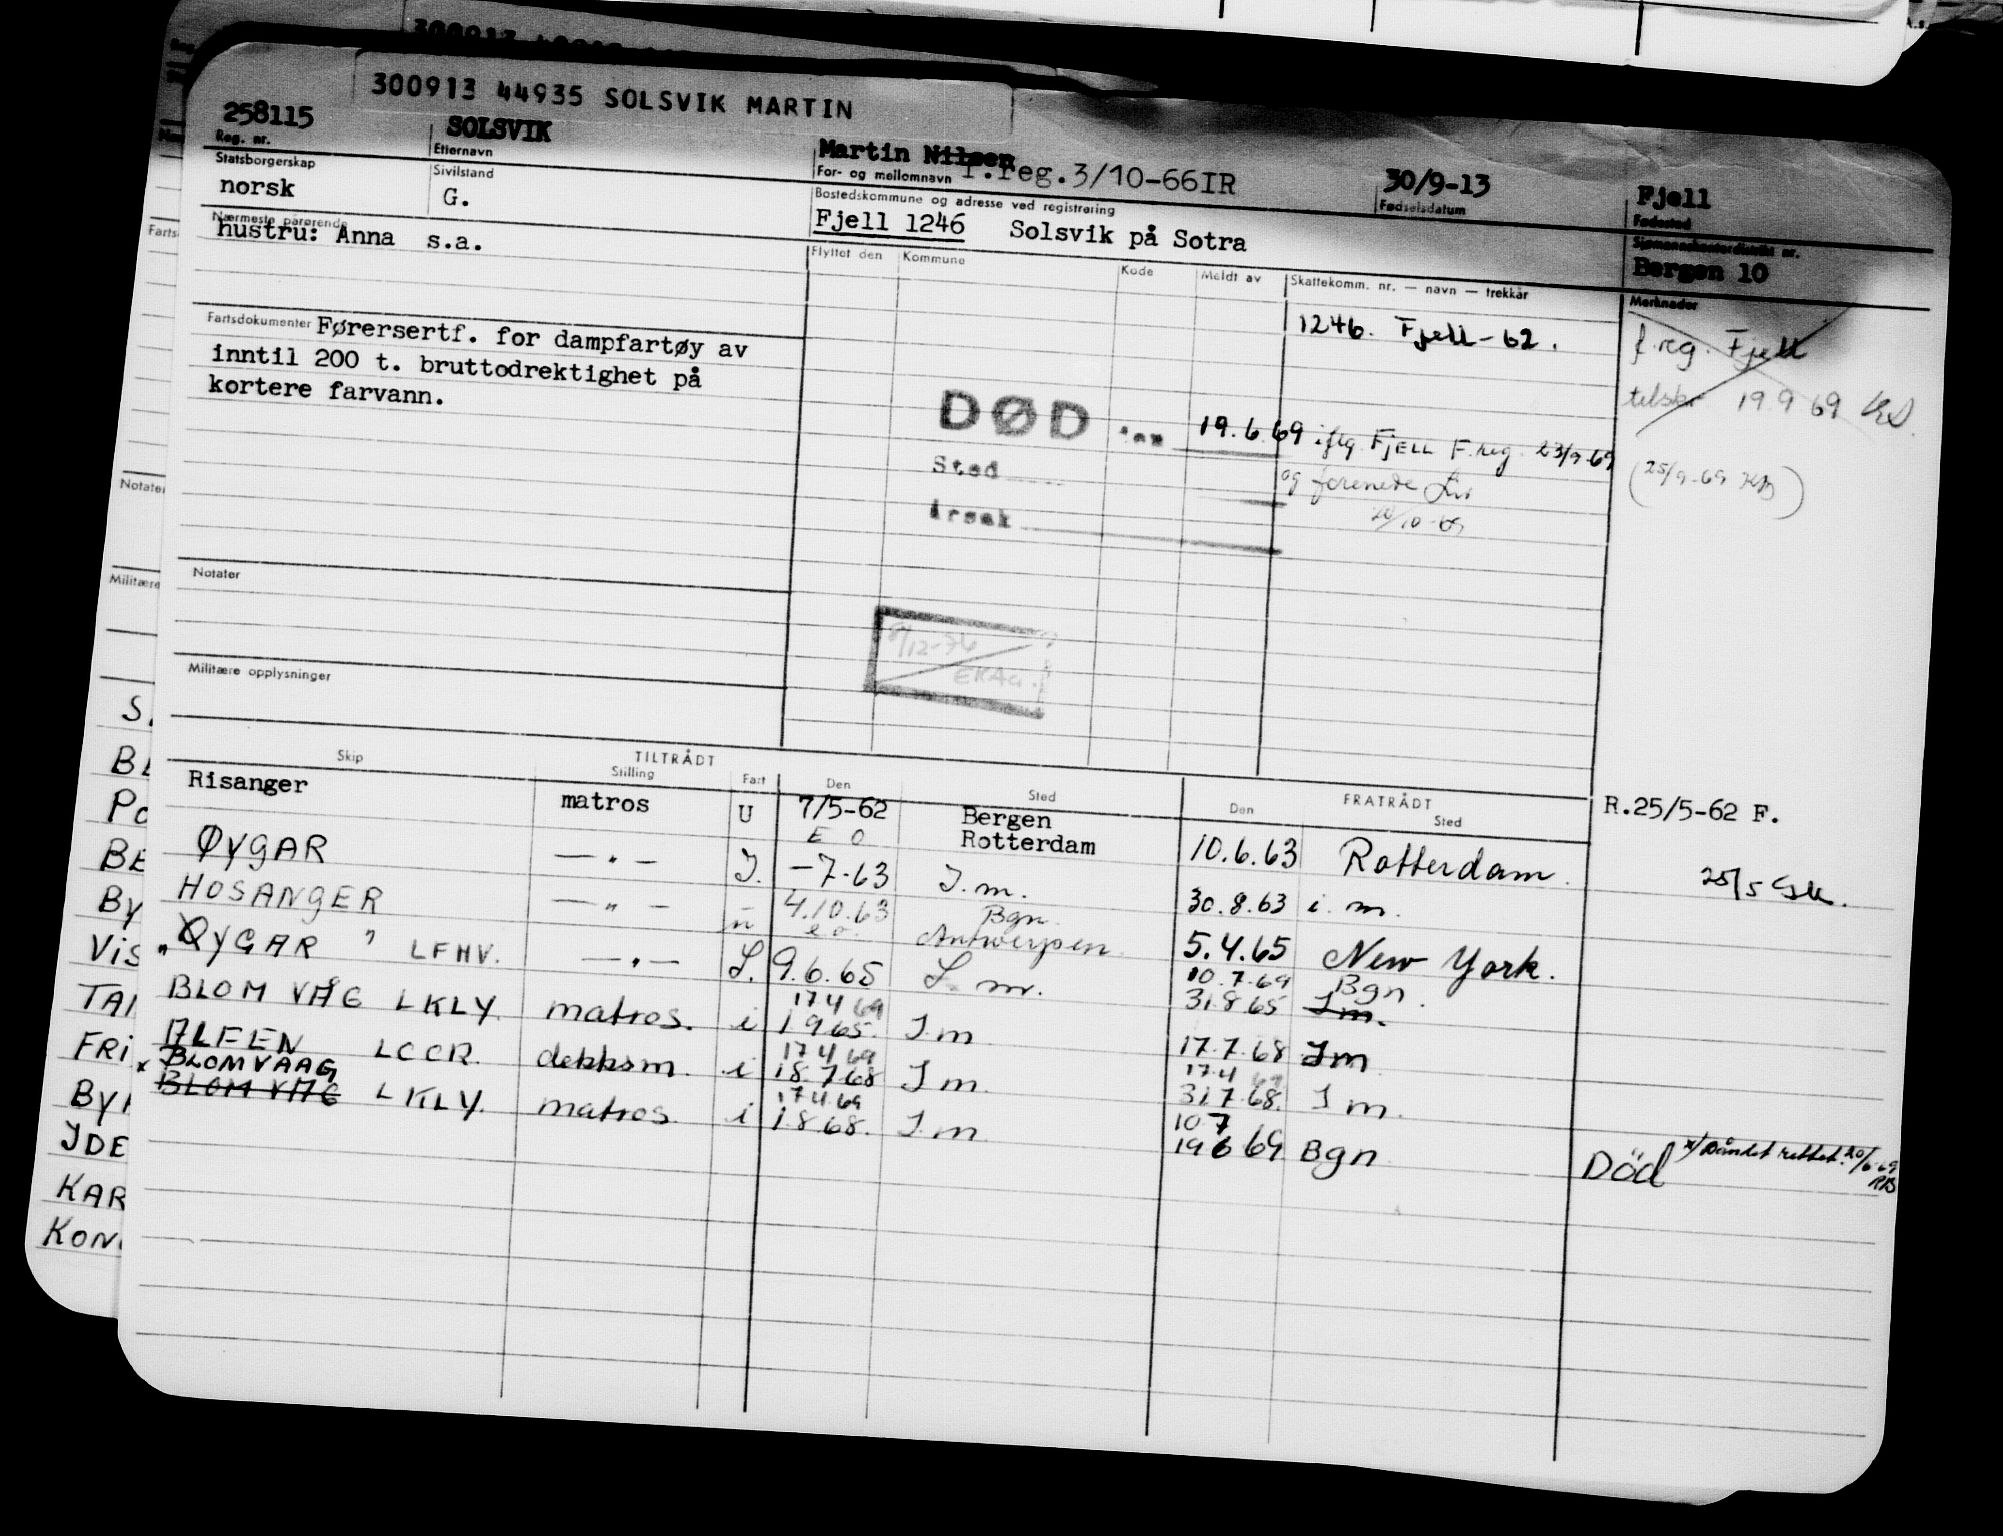 300913 44935 SOLSVIK MARTIN
258115 SOLSVIK Martin Nilsen f.reg.3/10-66IR 30/9-13 Fjell
Reg. nr. Etternavn For- og mellomnavn Fødselsdatum Fødested
Statsborgerskap Sivilstand Bostedskommune og adresse ved registrering
norsk G. Fjell 1246 Solsvik på Sotra Bergen 10
Nærmeste pårørende
hustru: Anna s.a.
Flyttet den Kommune Kode Meldt av Skattekomm. nr. — navn — trekkår Merknader
1246. Fjell-62. f.reg. Fjell
Fartsdokumenter Førersertf. for dampfartøy av
inntil 200 t. bruttodrektighet på
kortere farvann.
tilskr 19 9 69
DØD 19.6.69 iflg. FJELL F.reg. 23/9-69
Sted og forenede Liv (25/9-69 KB)
Årsak 20/10-69
Notater
8/12-76
Militære opplysninger
Skip TILTRÅDT Stilling Fart Den Sted FRATRÅDT Den Sted
Risanger matros U 7/5-62 Bergen R.25/5-62 F.
E O Rotterdam 10.6.63 Rotterdam.
ØYGAR — " — I. -7-63 I.m. 30.8.63 i. m. 25/5
HOSANGER — " — 4.10.63 Bgn.
e o. Antwerpen 5.4.65 New York.
"ØYGAR" LFHV. — " — I. 9.6.65 I m. 10.7.69 Bgn.
31.8.65 I m.
BLOM VÅG LKLY. matros. i 17 4 69
1 9 65. I m 17.7.68 I m
ALFEN LCCR. dekksm. i 17 4 69
18.7 68 I m. 17.4 69
31.7.68. I m.
x BLOMVAAG
BLOM VÅG LKLY. matros. i 17 4 69
1.8 68. I m 10 7
19 6 69 Bgn Død x/ Båndet rettet. 20/6-69
RB
Farts
Notater
Militære
S.
BL
Po
BE
By
Vis
TAI
FRi
By
IDE
KAR
KON